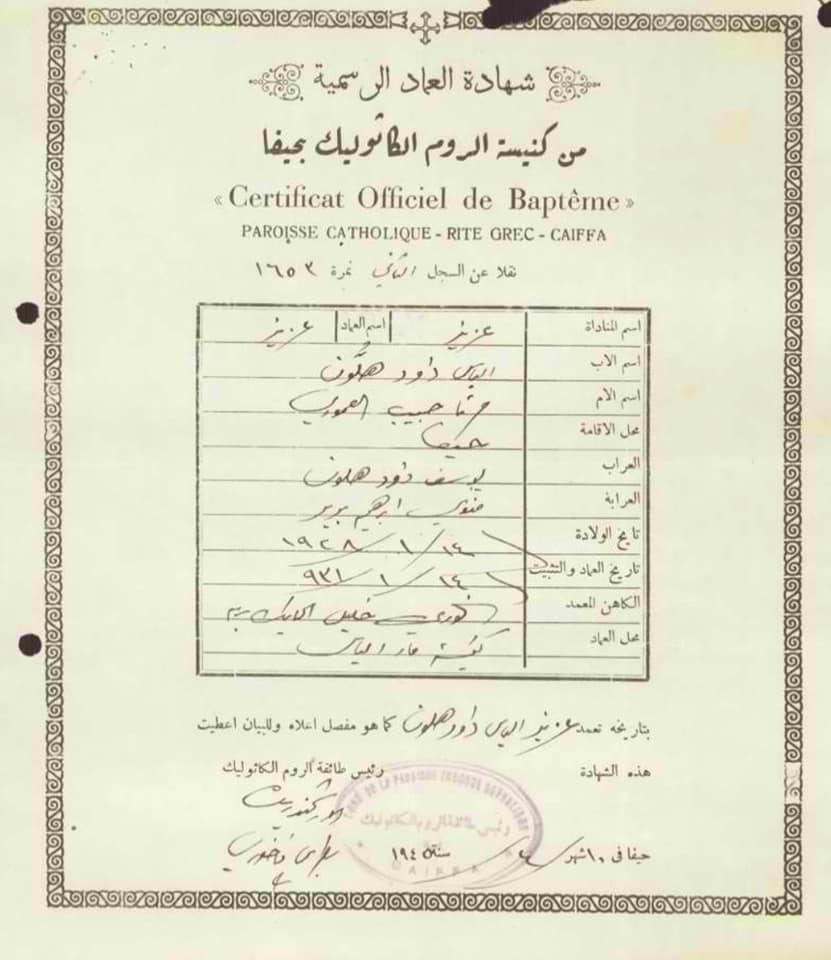 شهادة العماد الرسمية
من كنيسة الروم الكاثوليك بحيفا
« Certificat Officiel de Baptême »
PAROISSE CATHOLIQUE - RITE GREC - CAIFFA
نقلا عن السجل الثاني نمرة ١٦٥٣
اسم المناداة عزيز اسم العماد عزيز
اسم الاب الياس داود هلون
اسم الام حبيب
محل الاقامة حيفا
العراب يوسف داود هلون
العرابة ابرهيم
تاريخ الولادة ١٤/١/١٩٢٨
تاريخ العماد والتثبيت ١٤/١/٩٣١
الكاهن المعمد خوري خليل
محل العماد كنيسة مار الياس
بتاريخه تعمد عزيز الياس داود هلون كما هو مفصل اعلاه وللبيان اعطيت
هذه الشهادة رئيس طائفة الروم الكاثوليك
رئيس طائفة الروم الكاثوليك
CAIFFA
حيفا في ١٠ شهر سنة ١٩٤٥